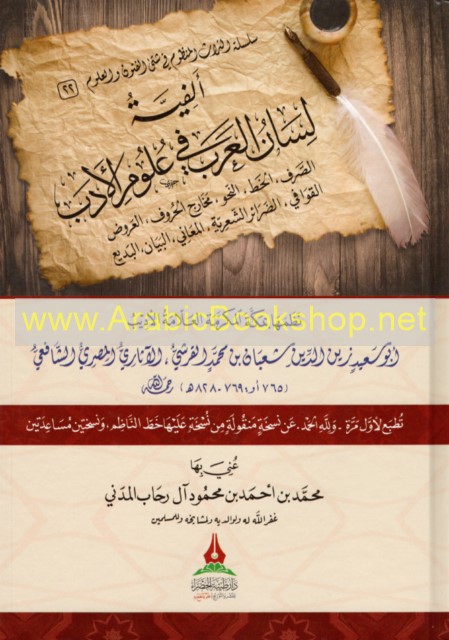 سلسلة التراث المنظوم في شتى الفنون والعلوم
٢٢
ألفية
لسان العرب في علوم الأدب
الصرف، الخط، النحو، مخارج الحروف، العروض
القوافي، الضرائر الشعرية، المعاني، البيان، البديع
نظمها بمكة المكرمة العلامة الأديب
www.ArabicBookshop.net
أبو سعيد زين الدين شعبان بن محمد القرشي، الآثاري المصري الشافعي
(٧٦٥ أو ٧٦٩-٨٢٨هـ) رحمه الله
تطبع لأول مرة - ولله الحمد - عن نسخة منقولة من نسخة عليها خط الناظم، ونسختين مساعدتين
عني بها
محمد بن أحمد بن محمود آل رحاب المدني
غفر الله له ولوالديه ولمشايخه وللمسلمين
دار طيبة الخضراء